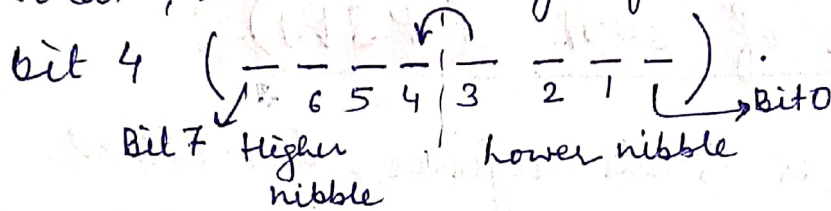 bit 4 ( _ _ _ _ _ _ _ _ ) .
6 5 4 3 2 1 Bit 0
Bit 7 Higher nibble Lower nibble